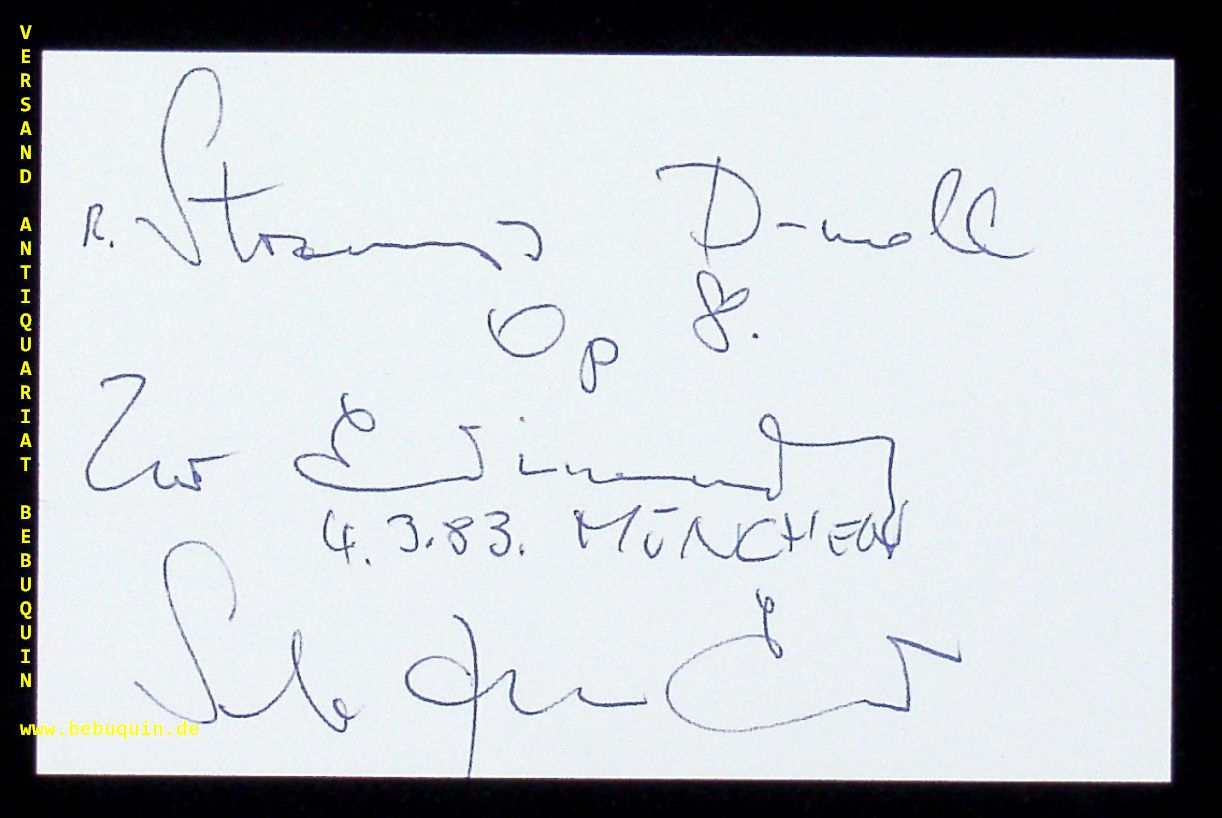 VERSAND ANTIQUARIAT BEBUQUIN
R. Strauss D-moll
Op 8.
Zur Erinnerung
4.3.83. MÜNCHEN
www.bebuquin.de